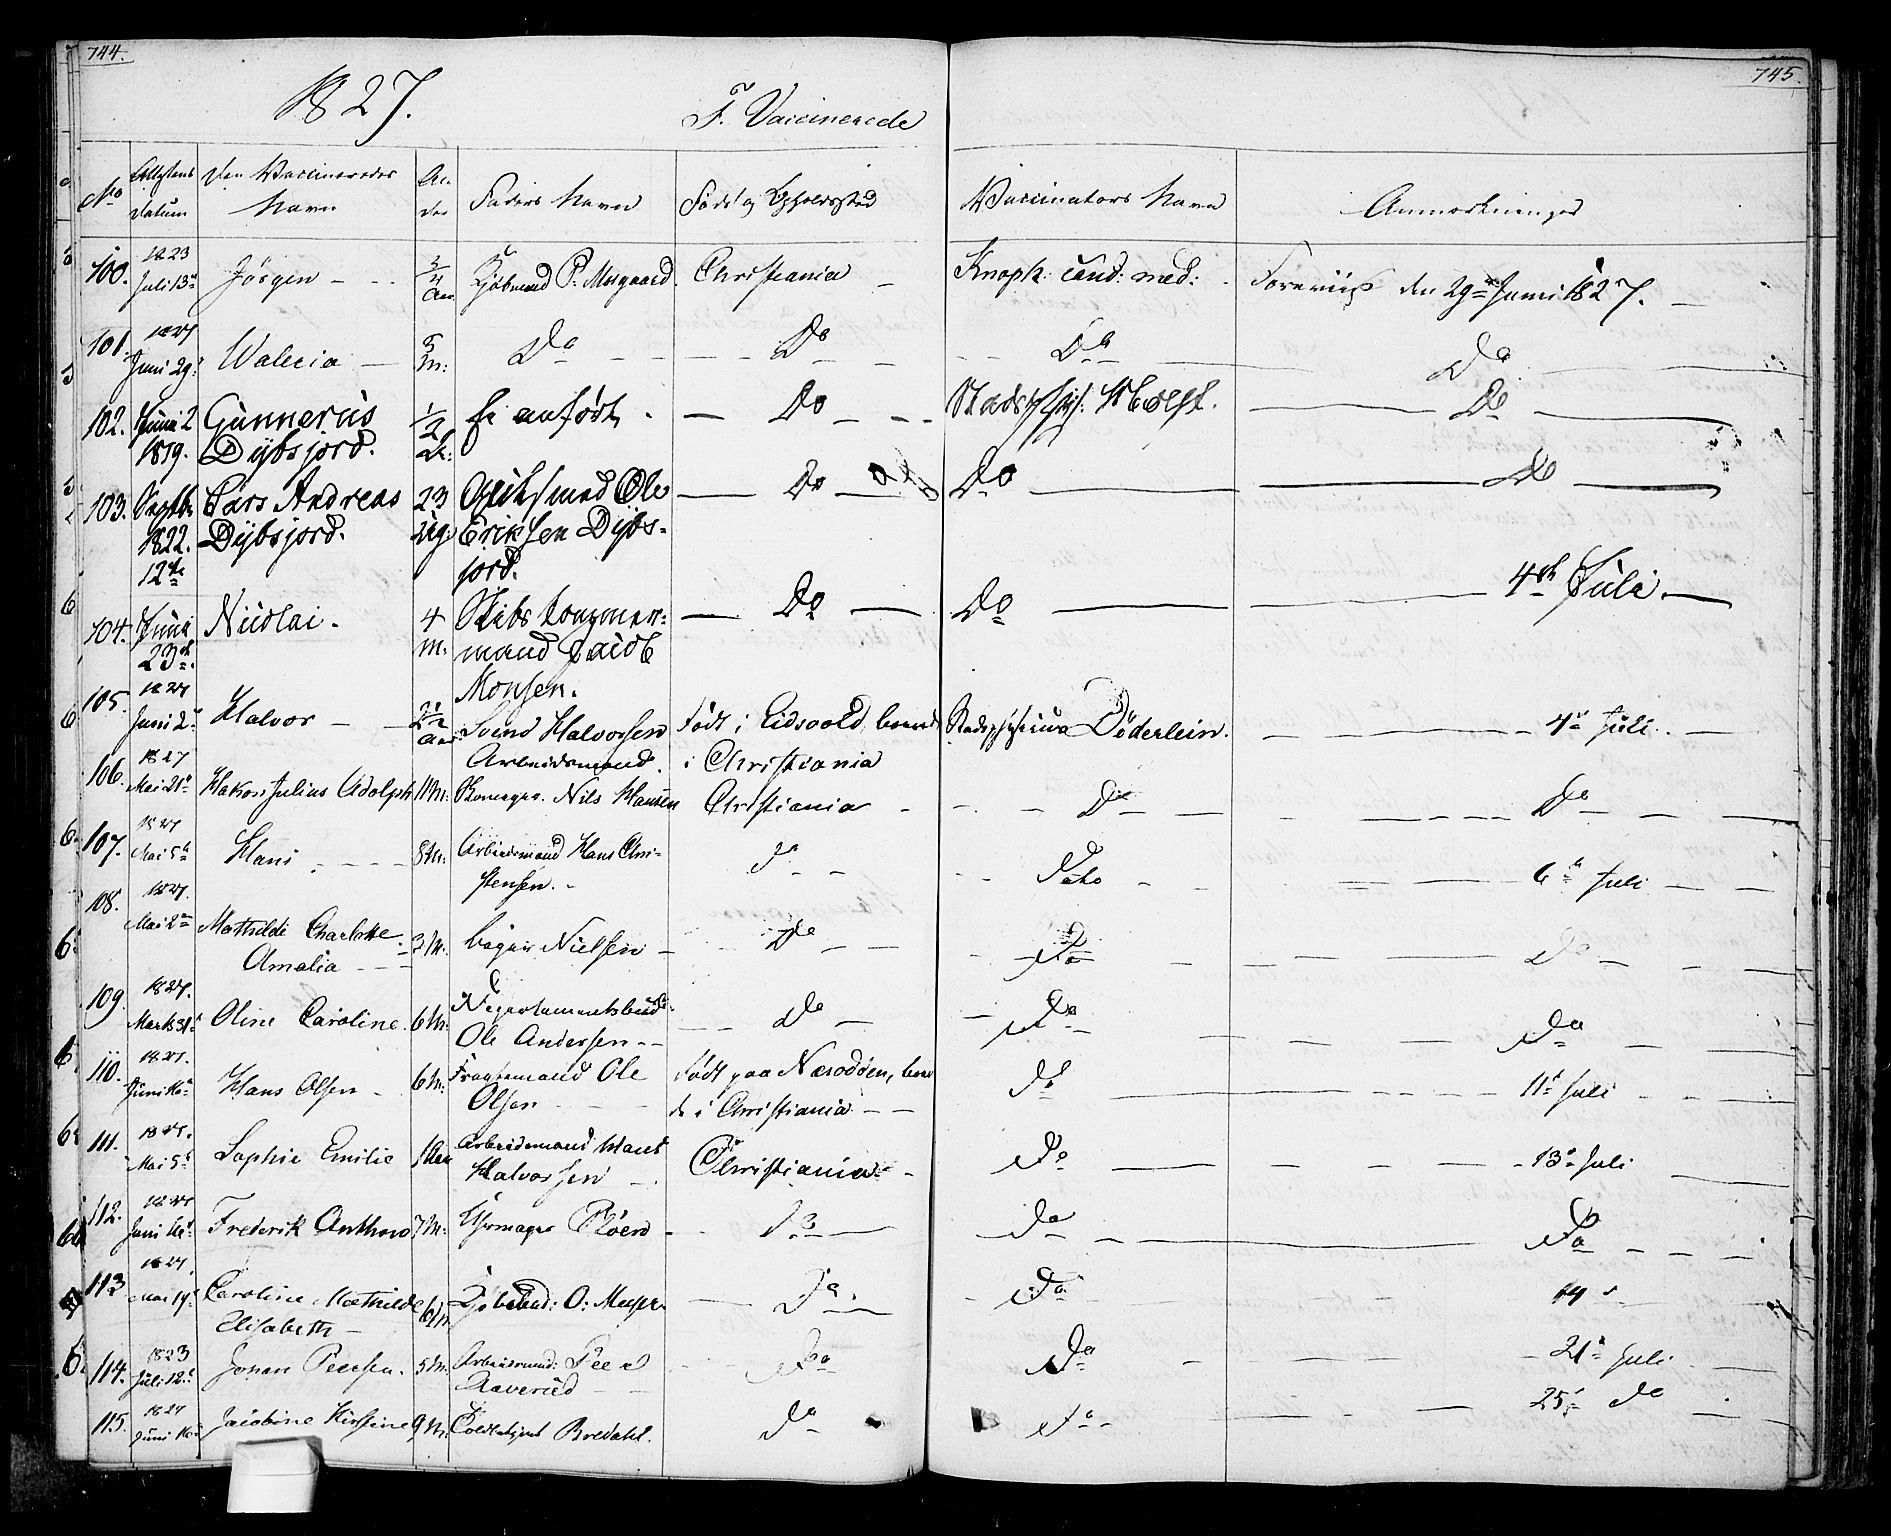 744.
745.
1827.
F. Vaccinerede
No
Attestens Datum
Den Vaccineredes Navn
Al-der
Faders Navn
Føde og Opholdssted
Vaccinators Navn
Anmærkninger
100. 1823 Juli 13de Jørgen 3/4 Aar Kjøbmand P. Morgaard. Christiania Knoph. cand: med: Foreviist den 29de Juni 1827.
101. 1827 Juni 29 Walecia 5 M: Do Do Do Do
102. Junii 2 1819. Gunnerius Dybsjord. 1/2 Ei anført. Do Stadsphys: Do
103. Septb. 1822. 12te Lars Andreas Dybsjord. 23 Ug: Ole Eriksen Dybs-jord. Do Do Do
104. Junii 23de. Nicolai. 4 m: Skibs tømmer-mand Jacob Monsen. Do Do 4de Juli
105. 1827 Juni 2 Halvor 2 1/2 Aar Svend Halvorsen Arbeidsmand. Født i Eidsvold, boende i Christiania Stadsphysicus Døderlein. 4de Juli.
106. 1827 Mai 21 Hakon Julius Adolph 11 M: Skomager. Nils Hansen Christiania Do Do
107. 1827 Mai 5 Hans 8 M: Arbeidsmand Hans Chri-stensen. Do Dito 6te Juli
108. 1827. Mai 2 Mathilde Charlotte Amalia 3 M. Bager Nielsen Do Do Do
109. 1827. Marts 31 Oline Caroline. 6 M: Ole Andersen Do Do Do
110. 1827. Juni 16 Hans Olsen 6 M: Ole Olsen Født paa Næsodden, boen-de i Christiania Do 11te Juli
111. 1827. Mai 5 Sophie Emilie 1 Aar Arbeidsmand Hans Halvorsen Christiania Do 13de Juli
112. 1827 Juni 16 Frederik Anthon 7 M: Uhrmager Ploen Do Do Do
113 1827. Mai 19 Caroline Mathilde Elisabeth Kjøbmd: O: Do Do 19
114. 1823 Juli 12 Johan Peersen. 5 M: Arbeidsmd: Peer Aaverud Do Do 21de Juli
115. 1827 Juni 16 Jacobine Kirstine 9 M: Toldbetjent Bredahl. Do Do 25 do